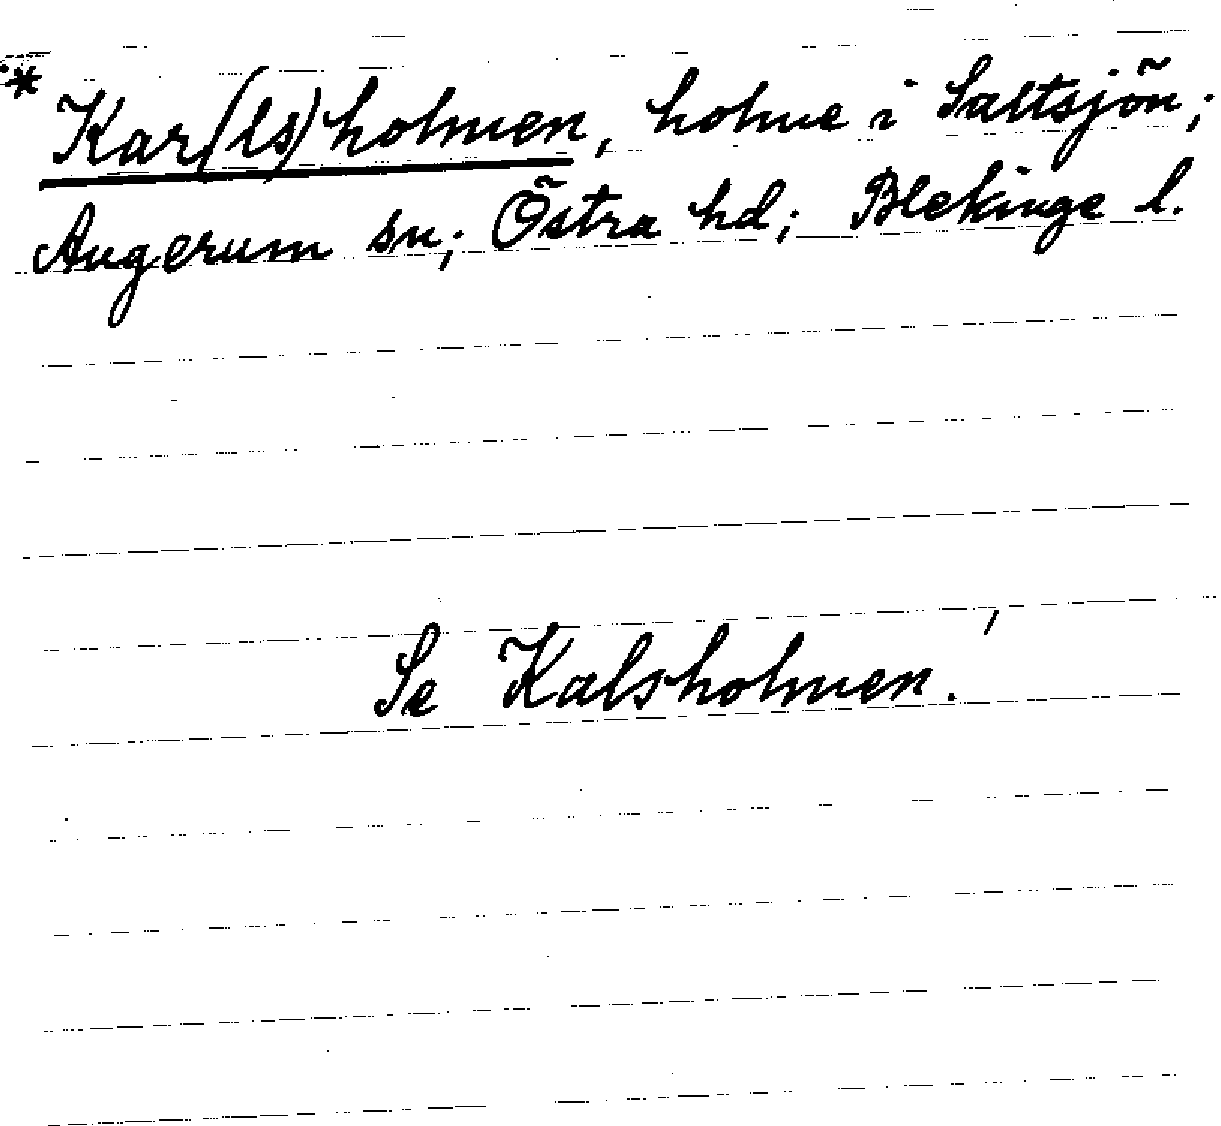 * Kar(ls)holmen, holme i Saltsjön;
Augerum sn; Östra hd; Blekinge l.
Se Kalsholmen.